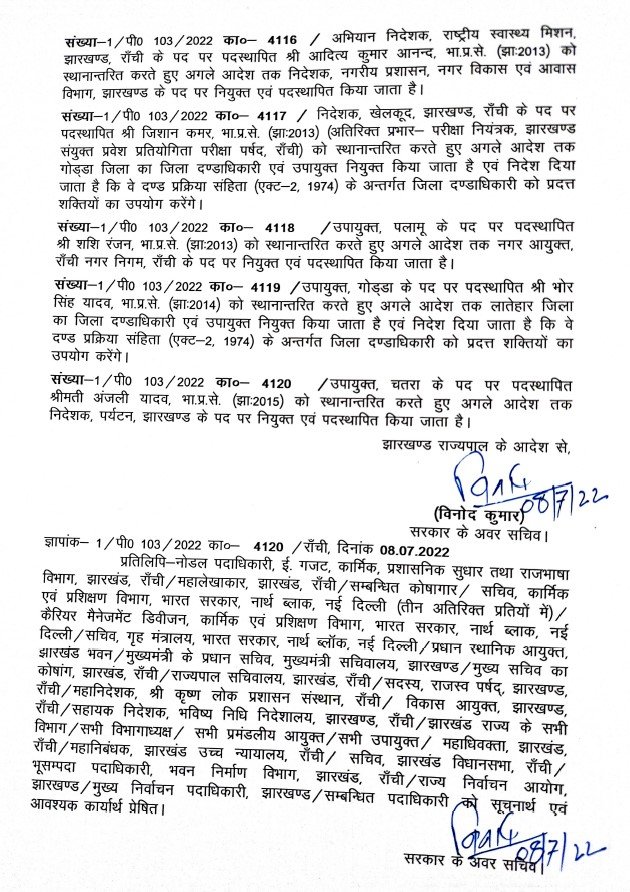 संख्या–1/पी0 103/2022 का०– 4116 / अभियान निदेशक, राष्ट्रीय स्वास्थ्य मिशन,
झारखण्ड, राँची के पद पर पदस्थापित श्री आदित्य कुमार आनन्द, भा.प्र.से. (झा:2013) को
स्थानान्तरित करते हुए अगले आदेश तक निदेशक, नगरीय प्रशासन, नगर विकास एवं आवास
विभाग, झारखण्ड के पद पर नियुक्त एवं पदस्थापित किया जाता है।
संख्या–1/पी0 103/2022 का०– 4117 / निदेशक, खेलकूद, झारखण्ड, राँची के पद पर
पदस्थापित श्री जिशान कमर, भा.प्र.से. (झा:2013) (अतिरिक्त प्रभार– परीक्षा नियंत्रक, झारखण्ड
संयुक्त प्रवेश प्रतियोगिता परीक्षा पर्षद, राँची) को स्थानान्तरित करते हुए अगले आदेश तक
गोड्डा जिला का जिला दण्डाधिकारी एवं उपायुक्त नियुक्त किया जाता है एवं निदेश दिया
जाता है कि वे दण्ड प्रक्रिया संहिता (एक्ट–2, 1974) के अन्तर्गत जिला दण्डाधिकारी को प्रदत्त
शक्तियों का उपयोग करेंगे।
संख्या–1/पी0 103/2022 का०– 4118 /उपायुक्त, पलामू के पद पर पदस्थापित
श्री शशि रंजन, भा.प्र.से. (झा:2013) को स्थानान्तरित करते हुए अगले आदेश तक नगर आयुक्त,
राँची नगर निगम, राँची के पद पर नियुक्त एवं पदस्थापित किया जाता है।
संख्या–1/पी0 103/2022 का०– 4119 /उपायुक्त, गोड्डा के पद पर पदस्थापित श्री भोर
सिंह यादव, भा.प्र.से. (झा:2014) को स्थानान्तरित करते हुए अगले आदेश तक लातेहार जिला
का जिला दण्डाधिकारी एवं उपायुक्त नियुक्त किया जाता है एवं निदेश दिया जाता है कि वे
दण्ड प्रक्रिया संहिता (एक्ट–2, 1974) के अन्तर्गत जिला दण्डाधिकारी को प्रदत्त शक्तियों का
उपयोग करेंगे।
संख्या–1/पी0 103/2022 का०– 4120 /उपायुक्त, चतरा के पद पर पदस्थापित
श्रीमती अंजली यादव, भा.प्र.से. (झा:2015) को स्थानान्तरित करते हुए अगले आदेश तक
निदेशक, पर्यटन, झारखण्ड के पद पर नियुक्त एवं पदस्थापित किया जाता है।
झारखण्ड राज्यपाल के आदेश से,
08/7/22
(विनोद कुमार)
सरकार के अवर सचिव।
ज्ञापांक– 1/पी0 103/2022 का०– 4120 /राँची, दिनांक 08.07.2022
प्रतिलिपि–नोडल पदाधिकारी, ई. गजट, कार्मिक, प्रशासनिक सुधार तथा राजभाषा
विभाग, झारखण्ड, राँची/महालेखाकार, झारखण्ड, राँची/सम्बन्धित कोषागार/ सचिव, कार्मिक
एवं प्रशिक्षण विभाग, भारत सरकार, नार्थ ब्लाक, नई दिल्ली (तीन अतिरिक्त प्रतियों में)/
कैरियर मैनेजमेंट डिवीजन, कार्मिक एवं प्रशिक्षण विभाग, भारत सरकार, नार्थ ब्लाक, नई
दिल्ली/सचिव, गृह मंत्रालय, भारत सरकार, नार्थ ब्लॉक, नई दिल्ली/प्रधान स्थानिक आयुक्त,
झारखंड भवन/मुख्यमंत्री के प्रधान सचिव, मुख्यमंत्री सचिवालय, झारखण्ड/मुख्य सचिव का
कोषांग, झारखंड, राँची/राज्यपाल सचिवालय, झारखंड, राँची/सदस्य, राजस्व पर्षद्, झारखण्ड,
राँची/महानिदेशक, श्री कृष्ण लोक प्रशासन संस्थान, राँची/ विकास आयुक्त, झारखण्ड,
राँची/सहायक निदेशक, भविष्य निधि निदेशालय, झारखण्ड, राँची/झारखंड राज्य के सभी
विभाग/सभी विभागाध्यक्ष/ सभी प्रमंडलीय आयुक्त/सभी उपायुक्त/ महाधिवक्ता, झारखंड,
राँची/महानिबंधक, झारखंड उच्च न्यायालय, राँची/ सचिव, झारखंड विधानसभा, राँची/
भूसम्पदा पदाधिकारी, भवन निर्माण विभाग, झारखंड, राँची/राज्य निर्वाचन आयोग,
झारखण्ड/मुख्य निर्वाचन पदाधिकारी, झारखण्ड/सम्बन्धित पदाधिकारी को सूचनार्थ एवं
आवश्यक कार्यार्थ प्रेषित।
08/7/22
सरकार के अवर सचिव।